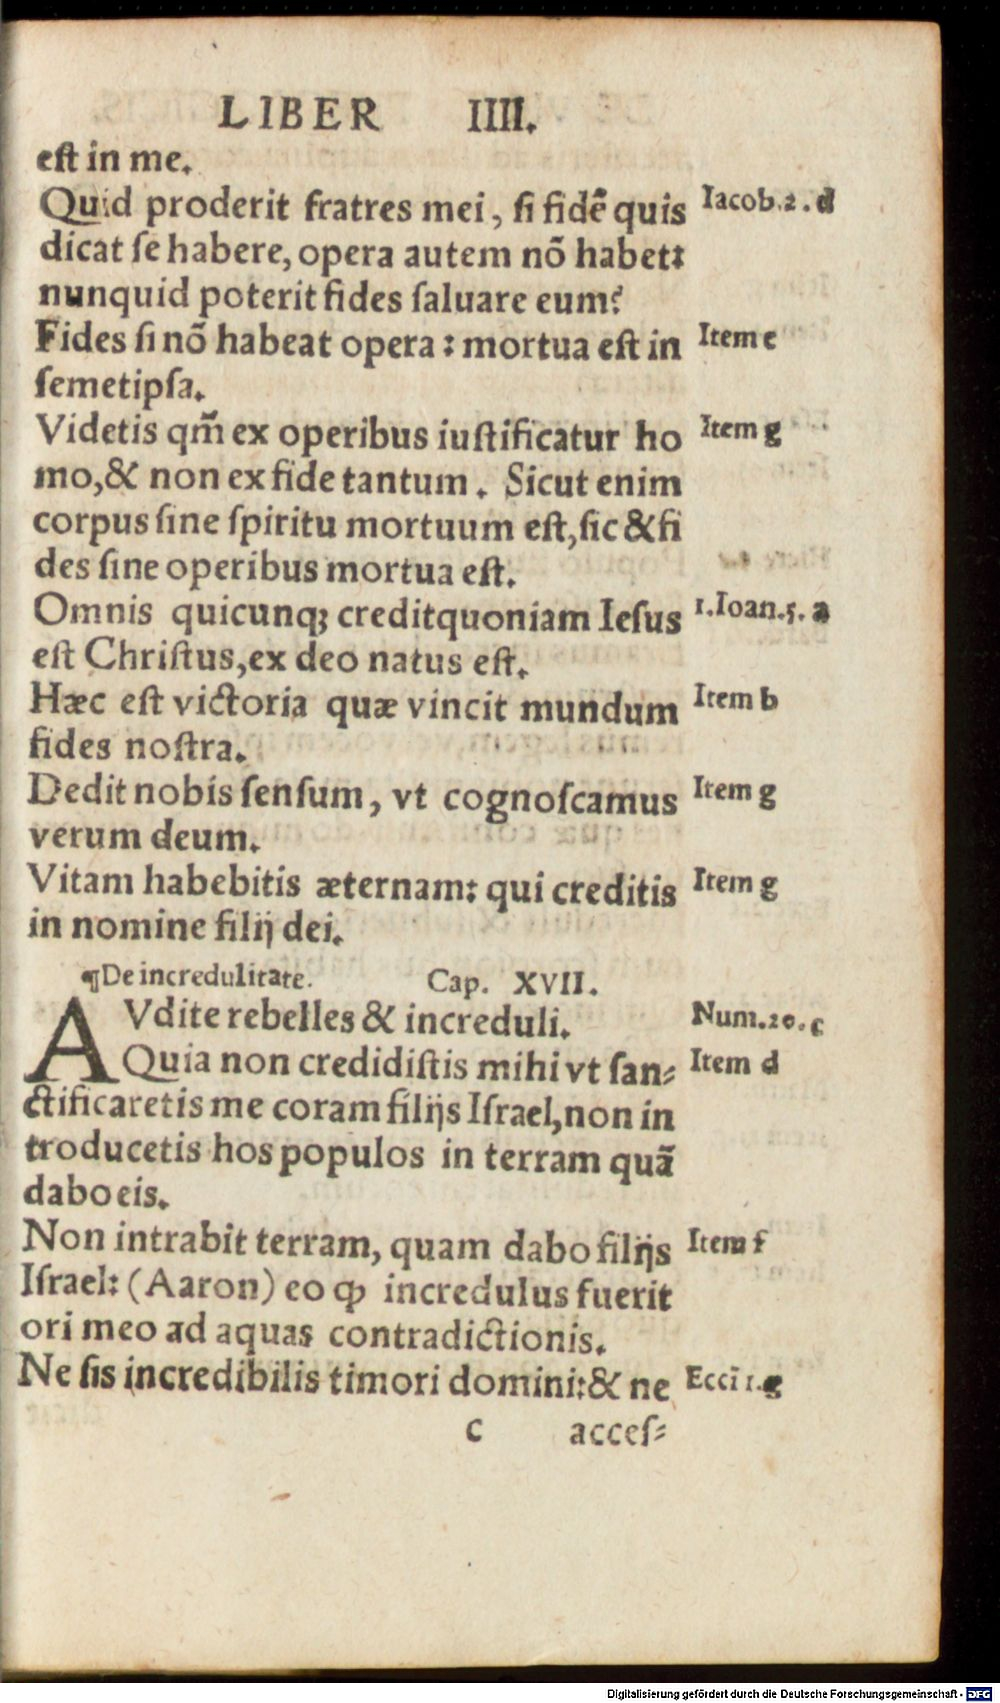 LIBER IIII.
eſt in me.
Quid proderit fratres mei, ſi fidē quis Iacob.2.d
dicat ſe habere, opera autem nō habet:
nunquid poterit fides ſaluare eum?
Fides ſi nō habeat opera: mortua eſt in Item c
ſemetipſa.
Videtis qm̄ ex operibus iuſtificatur ho Item g
mo,& non ex fide tantum. Sicut enim
corpus ſine ſpiritu mortuum eſt,ſic & fi
des ſine operibus mortua eſt.
Omnis quicunq; creditquoniam Ieſus 1.Ioan.5.a
eſt Chriſtus,ex deo natus eſt.
Hæc eſt victoria quæ vincit mundum Item b
fides noſtra.
Dedit nobis ſenſum, vt cognoſcamus Item g
verum deum.
Vitam habebitis æternam: qui creditis Item g
in nomine filij dei.
¶De incredulitate. Cap. XVII.
AVdite rebelles & increduli. Num.20.c
Quia non credidiſtis mihi vt ſan⸗ Item d
ctificaretis me coram filijs Iſrael,non in
troducetis hos populos in terram quā
dabo eis.
Non intrabit terram, quam dabo filijs Item f
Iſrael: (Aaron) eo ꝙ incredulus fuerit
ori meo ad aquas contradictionis.
Ne ſis incredibilis timori domini:& ne Eccī 1.g
c acceſ⸗
Digitalisierung gefördert durch die Deutsche Forschungsgemeinschaft - DFG